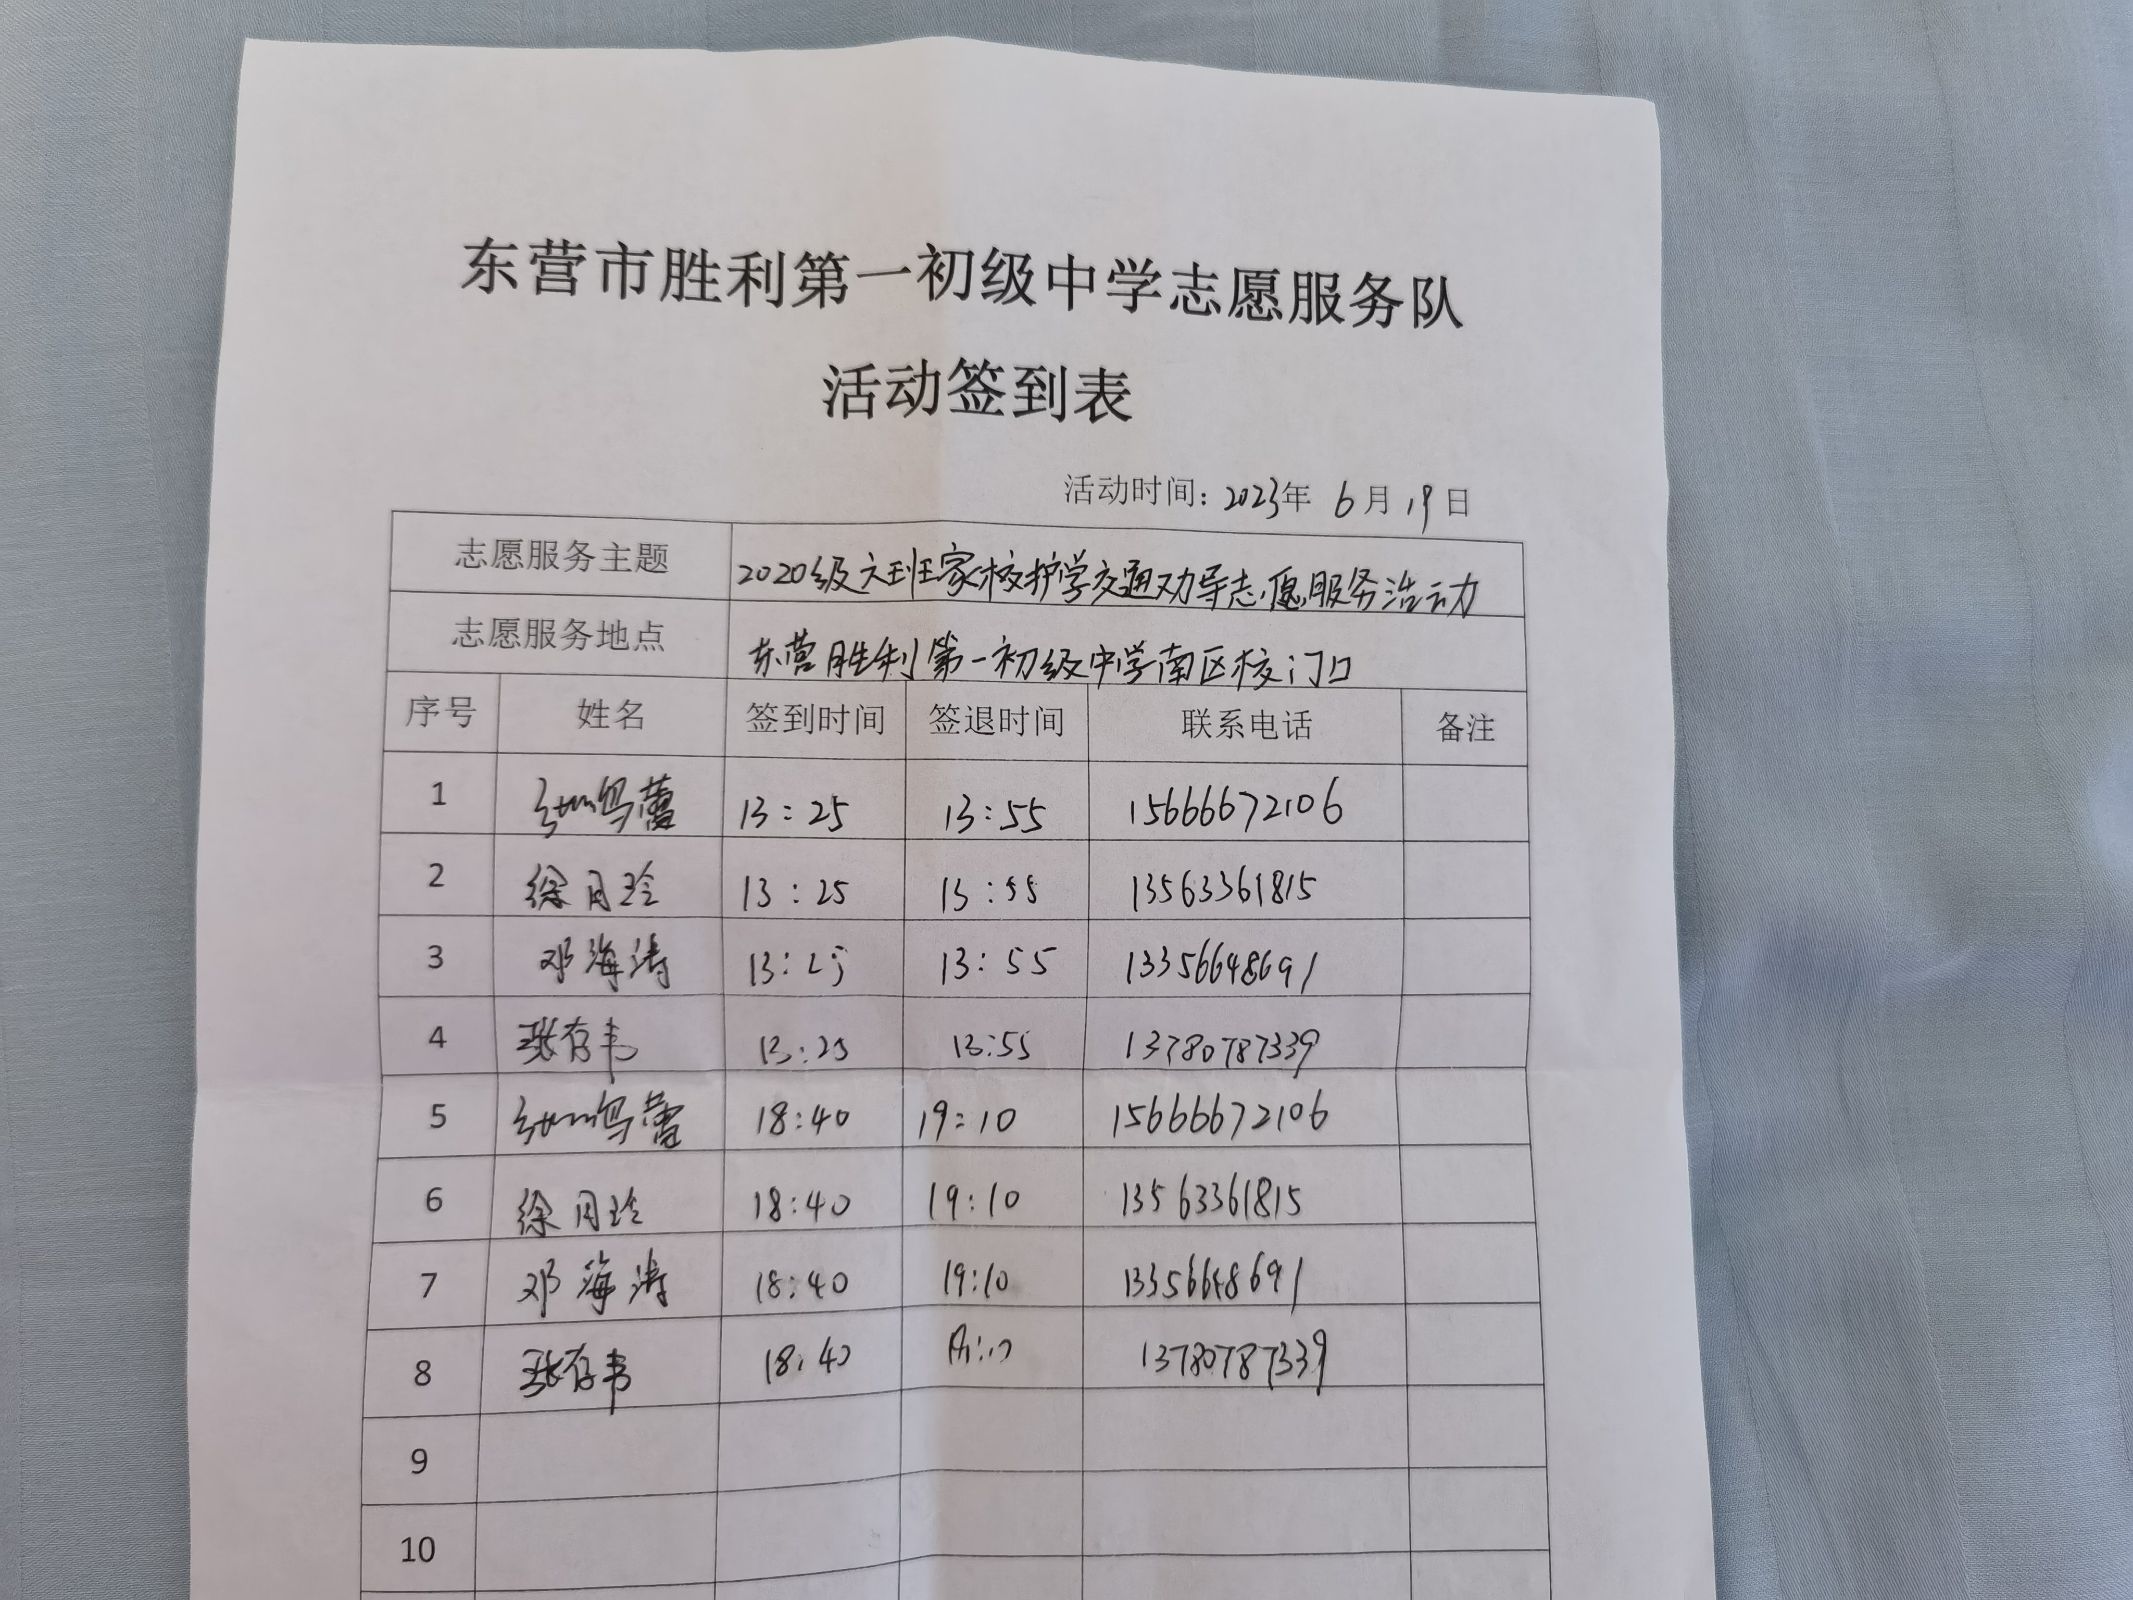 东营市胜利第一初级中学志愿服务队
活动签到表
活动时间：2023年 6月19日
志愿服务主题 2020级六班家校护学交通劝导志愿服务活动
志愿服务地点 东营胜利第一初级中学南区校门口
序号 姓名 签到时间 签退时间 联系电话 备注
1 13:25 13:55 15666672106
2 徐月玲 13:25 13:55 13563361815
3 邓海涛 13:25 13:55 13356648691
4 张存韦 13:25 13:55 13780787339
5 18:40 19:10 15666672106
6 徐月玲 18:40 19:10 13563361815
7 邓海涛 18:40 19:10 13356648691
8 张存韦 18:40 19:10 13780787339
9
10